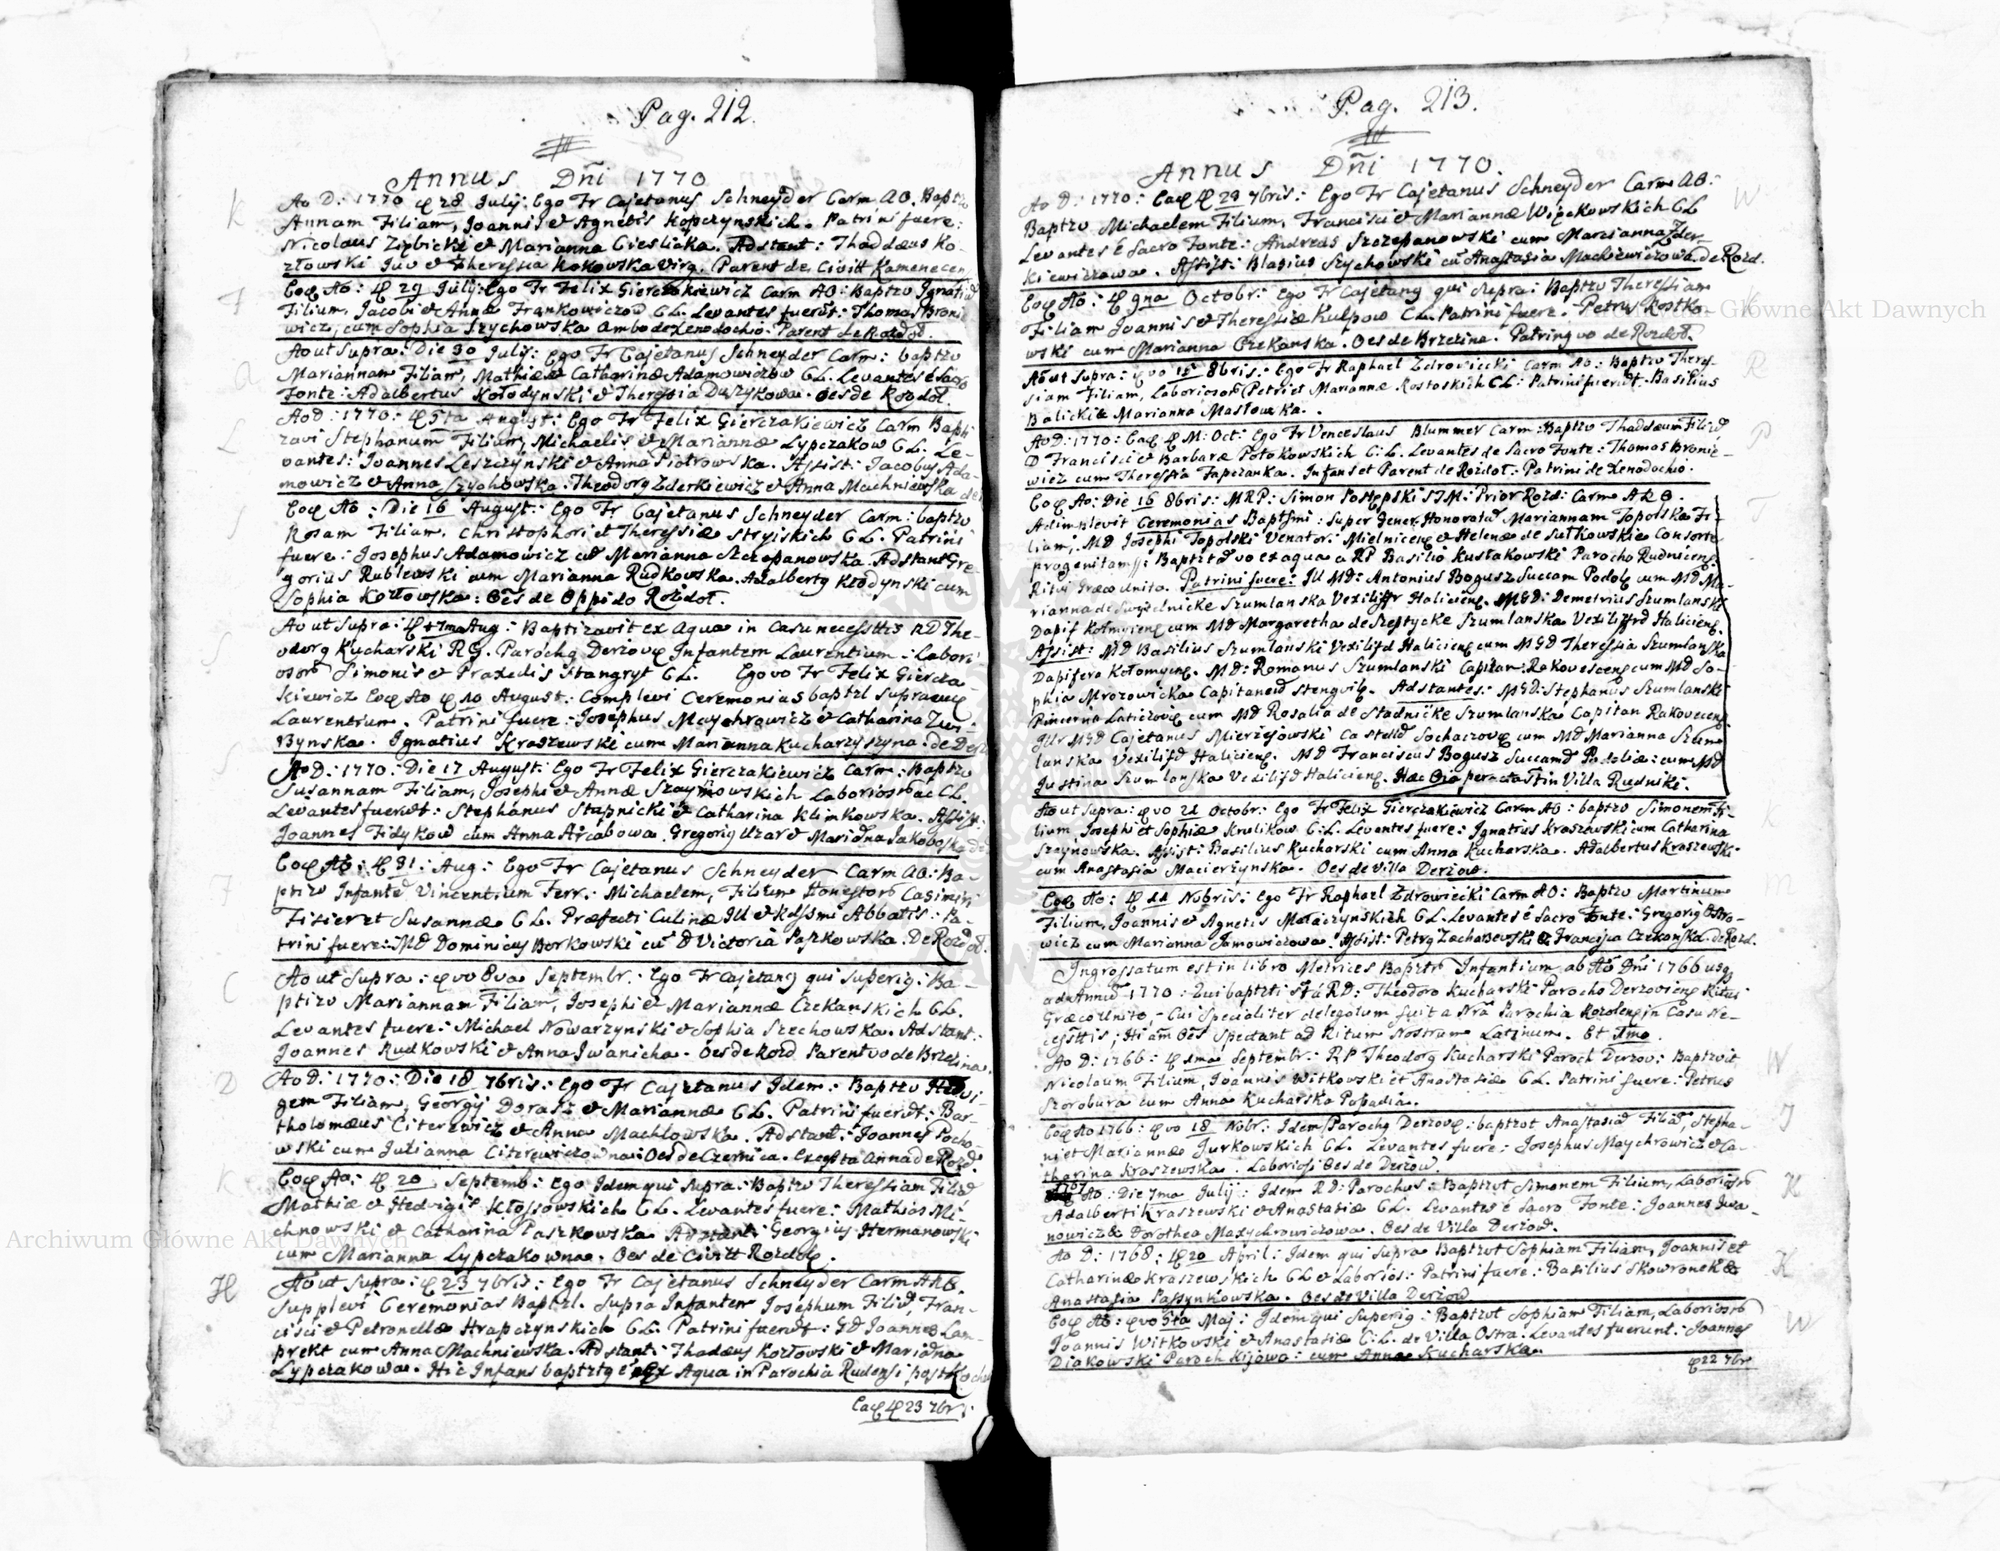 Pag. 212.
Annus Dñi 1770
K
Ao D: 1770 28 July: Ego Fr Cajetanus Schneyder Carm AO. Baptzo
Annam Filiam, Joannis & Agnetis Kopczynskich. Patrini fuere:
Nicolaus Zipbicki & Marianna Ciesliczka. Adstant: Thaddæus Ko-
złowski Juv & Theressia Kokowska Virg. Parent de Civitt Kamenecen
F
Eoq Ao: 29 July: Ego Fr Felix Gierczakiewicz Carm AO: Baptzo Ignatiu
Filium, Jacobi & Annæ Frankowiczow CL. Levantes fuerut: Thomas Broni
wicz, cum Sophia Szychowska ambo de Xenodochio. Parent de Rozdoł.
A
Ao ut Supra: Die 30 July: Ego Fr Cajetanus Schneyder Carm: baptzo
Mariannam Filiam, Mathiæ & Catharinæ Adamowiczow CL. Levantes e Sacro
Fonte: Adalbertus Kołodynski & Theressia Duszykowa. Oes de Rozdoł.
L
Ao D: 1770: 5ta August: Ego Fr Felix Gierczakiewicz Carm Bapti
zavi Stephanum Filium, Michaelis & Mariannæ Lypczakow CL. Le-
vantes: Joannes Leszczynski & Anna Piotrowska. Assist: Jacobus Ada-
mowicz & Anna Szychowska. Theodorg Zderkiewicz & Anna Machniewska de
S
Eoq Ao: Die 16 August: Ego Fr Cajetanus Schneyder Carm: baptzo
Rosam Filiam, Christophori et Theressiæ Stryiskich CL. Patrini
fuere: Josephus Adamowicz cu Marianna Szczepanowska. Adstant Gre
gorius Rublewski cum Marianna Rudkowska. Adalbertg Kłodynski cum
Sophia Kozłowska: Oes de Oppido Rozdoł.
S
Ao ut Supra: 17ma Aug: Baptizavit ex Aqua in Casu necesstis RD The-
odorg Kucharski RG. Parochg Derzovq Infantem Laurentium. Labori
osor Simonis & Praxedis Stangryt CL. Ego vo Fr Felix Giercza-
kiewicz Eoq Ao 20 August: Complevi Ceremonias baptzl supraeug
Laurentium. Patrini fuere: Josephus Maychrowicz & Catharina Zwi-
Bynska. Ignatius Kraszewski cum Marianna Kucharzyszyna. de Derz
S
Ao D: 1770: Die 17 August: Ego Fr Felix Gierczakiewicz Carm: Baptzo
Susannam Filiam, Josephi & Annæ Szaynowskich Laborioso ac CL.
Levantes fuerut: Stephanus Stapnicki & Catharina Klimkowska. Assist:
Joannes Fidykow cum Anna Arcabowa. Gregorig Uzar & Mariana Jakoboska de
F
Eoq Ao: 31: Aug: Ego Fr Cajetanus Schneyder Carm AO: Ba-
ptizo Infante Vincentium Ferr: Michaelem, Filium Honestor Casimiri
Fisier et Susannæ CL. Præfecti Culinæ Ill & Rdssmi Abbatis: Pa-
trini fuere: MD Dominicus Borkowski cu D Victoria Papkowska. De Rozdoł.
C
Ao ut Supra: vo 8va Septembr: Ego Fr Cajetang qui Superig: Ba-
ptizo Mariannam Filiam, Josephi & Mariannæ Czekanskich CL.
Levantes fuere: Michael Nowarzynski & Sophia Szechowska. Adstant:
Joannes Rudkowski & Anna Jwanicha. Oes de Rozd Parent vo de Brzezina.
D
Ao D: 1770: Die 18 7bris: Ego Fr Cajetanus Idem: Baptzo Hedvi-
gem Filiam, Georgij Dorasz & Mariannæ CL. Patrini fuerut: Bar-
tholomæus Citerzwicz & Anna Machlowska. Adstant: Joannes Pocho-
wski cum Julianna Citerzwiczowna: Oes de Czernica. Excepta Anna de Rozd.
K
Eoq Ao: 20 Septemb: Ego Idem qui supra: Baptzo Theressiam Filia
Mathiæ & Hedvigis Kłossowskich CL. Levantes fuere: Mathias Mi-
chnowski & Catharina Paszkowska. Adstant: Georgius Hermanowski
cum Marianna Lypczakowna. Oes de Civitt Rozdoł.
H
Ao ut Supra: 23 7bris: Ego Fr Cajetanus Schneyder Carm ARO.
Supplevi Ceremonias Baptzl. Supra Infantem Josephum Filiu, Fran-
cisci & Petronellæ Hrapczynskich CL. Patrini fuerut: GD Joannes Lam-
prekt cum Anna Machniewska. Adstant: Thadæus Kozłowski & Mariana
Lypczakowa. Hic Infans baptztg e ex Aqua in Parochia Rudensi post
Eaq 23 7br:
Pag. 213.
Annus Dñi 1770.
W
Ao D: 1770: Eaq 29 7bris: Ego Fr Cajetanus Schneyder Carm AO:
Baptzo Michaelem Filium, Francisci & Mariannæ Wipckowskich CL
Levantes e Sacro Fonte: Andreas Szczepanowski cum Marianna Zder
kiewiczowa. Assist: Blasius Szychowski cu Anastasia Machiewiczowa. de Rozd.
K
Eoq Ao: 9na Octobr: Ego Fr Cajetang qui supra: Baptzo Theressiam
Filiam Joannis & Theressiæ Kulpow CL. Patrini fuere. Petrus Rostko-
wski cum Marianna Czekanska. Oes de Brzezina. Patring vo de Rozdoł.
R
Ao ut Supra: vo 10 8bris: Ego Fr Raphael Zdrowiecki Carm AO: Baptzo Theres-
siam Filiam, Laboriosor Petri et Mariannæ Rostoskich CL: Patrini fuerut. Basilius
Balicki & Marianna Masłowska.
P
Ao D: 1770: Eaq M: Oct: Ego Fr Venceslaus Blummer Carm: Baptzo Thaddæum Filiu
D Francisci & Barbaræ Potokowskich C:L. Levantes de Sacro Fonte: Thomas Bronie-
wicz cum Theressia Fapczanka. Infans et Parent de Rozdoł: Patrini de Xenodochio.
T
Eoq Ao: Die 16 8bris: MRP: Simon Postępski STM: Prior Rozd: Carm ARO.
Adimplevit Ceremonias Baptsmi: super Gener. Honorata Mariannam Topolska Fi-
liam, MD Josephi Topolski Venatori Mielnicen & Helenæ de Sutkowskie Consorte
progenitam: Baptztd vo ex aqua a RP Basilio Kustakowski Parocho Rudnicen:
Ritus Græco Unito. Patrini fuere: Ill MD: Antonius Bogusz Succam Podol cum MD Ma-
rianna de Swydnickie Szumlanska Vexilifr Halicien. MGD: Demetrius Szumlanski
Dapif Kołmyien cum MD Margaretha de Szeptycke Szumlanska Vexilifrd Halicieng.
Assist: MD Basilius Szumlanski Vexilifd Halicieng cum MGD Theressia Szumlanska
Dapifero Kołomyeng. MD: Romanus Szumlanski Capitan: Rakovesceng cum MD So-
phia Mrozowicka Capitaned Stengvilg. Adstantes: MGD: Stephanus Szumlanski
Pincerna Laticzovg cum MD Rosalia de Stadnicke Szumlanska Capitan Rakoveceng
Illr MGD Cajetanus Mierzejowski Castelld Sochaczovg cum MD Marianna Szum-
lanska Vexilifd Halicieng. MD Franciscus Bogusz Succamd Podolia: cum MD
Justina Szumlanska Vexilifd Halicieng. Hæc Oia peracta st in Villa Rudniki.
K
Ao ut Supra: vo 21 Octobr: Ego Fr Felix Gierczakiewicz Carm AO: baptzo Simonem Fi-
lium, Josephi et Sophiæ Krulikow C:L. Levantes fuere: Ignatius Kraszewski cum Catharina
Szaynowska. Assist: Basilius Kucharski cum Anna Kucharska. Adalbertus Kraszewski
cum Anastasia Macierzynska. Oes de Villa Derzow.
M
Eoq Ao: 11 Nobris: Ego Fr Raphael Zdrowiecki Carm AO: Baptzo Martinum
Filium, Joannis & Agnetis Mataczynskich CL. Levantes e Sacro Fonte: Gregorig Ostro-
wicz cum Marianna Jamowiczowa. Assist: Petrg Zacharzewski & Francisca Czekanska. de Rozd.
Ingrossatum est in libro Metrices Baptzo Infantium, ab Ao Dni 1766 usq
ad Annu 1770: Qui baptzti st a RD: Theodoro Kucharski Parocho Derzovieng Ritus
Græco Unito. Cui specialiter delegatum fuit a Nra Parochia Rozoleng in Casu Ne-
cesstis; Hi am Oes spectant ad Ritum Nostrum Latinum. Et Imo.
W
Ao D: 1766: 1ma Septembr: RP Theodorg Kucharski Paroch Derzov: Baptzvit
Nicolaum Filium, Joannis Witkowski et Anastasiæ CL. Patrini fuere: Petrus
Szorobura cum Anna Kucharska Popadia.
J
Eoq Ao 1766: vo 18 Nobr: Idem Parochg Derzovg: baptzvt Anastasia Filia, Stepha-
ni et Mariannæ Jurkowskich CL. Levantes fuere: Josephus Maychrowicz & Ca-
tharina Kraszewska. Laboriosi Oes de Derzow.
K
1767 Ao: Die 7ma Julij: Idem RD: Parochus: Baptzvt Simonem Filium, Labörioso
Adalberti Kraszewski & Anastasiæ CL. Levantes e Sacro Fonte: Joannes Iwa-
nowicz & Dorothea Maychrowiczowa. Oes de Villa Derzow.
K
Ao D: 1768: 20 April: Idem qui supra Baptzvt Sophiam Filiam, Joannis et
Catharinæ Kraszewskich CL & Laborios: Patrini fuere: Basilius Skowronek &
Anastasia Passynkowska. Oes de Villa Derzow
W
Eoq Ao: vo 5ta Maj: Idem qui Superig: Baptzvt Sophiam Filiam, Labörioso
Joannis Witkowski & Anastasiæ C:L. de Villa Ostra. Levantes fuerunt: Joannes
Diakowski Paroch Kijowo: cum Anna Kucharska.
22 7br
Archiwum Główne Akt Dawnych
Główne Akt Dawnych